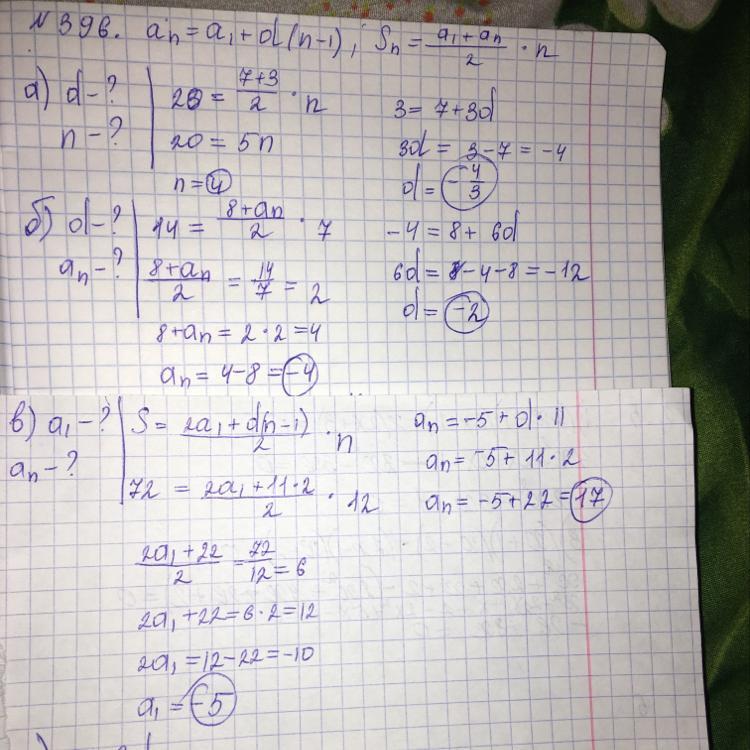 № 396. aₙ = a₁ + d(n-1), Sₙ = (a₁ + aₙ)/2 · n
а) d-?
n-?
20 = (7+3)/2 · n
20 = 5n
n = 4
3 = 7 + 3d
3d = 3-7 = -4
d = -4/3
б) d-?
aₙ-?
14 = (8+aₙ)/2 · 7
(8+aₙ)/2 = 14/7 = 2
8+aₙ = 2·2 = 4
aₙ = 4-8 = -4
-4 = 8 + 6d
6d = -4-8 = -12
d = -2
в) a₁-?
aₙ-?
S = (2a₁+d(n-1))/2 · n
72 = (2a₁+11·2)/2 · 12
(2a₁+22)/2 = 72/12 = 6
2a₁+22 = 6·2 = 12
2a₁ = 12-22 = -10
a₁ = -5
aₙ = -5+d·11
aₙ = -5+11·2
aₙ = -5+22 = 17